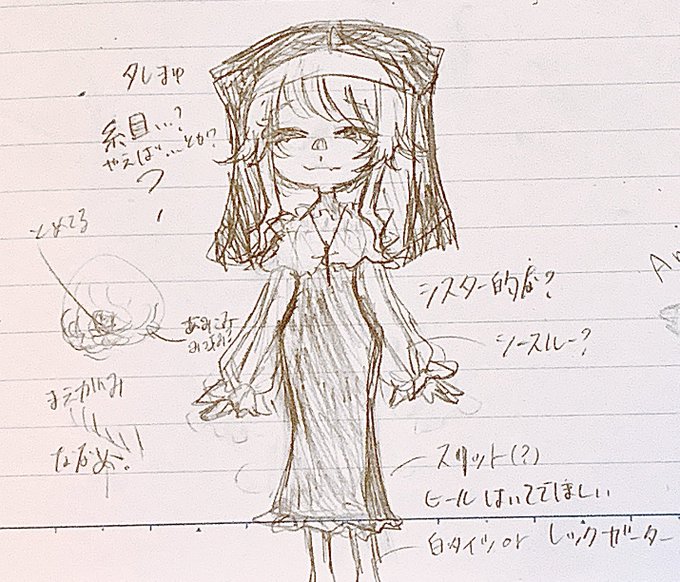 タレまゆ
糸目…?
やえば…とか?
とめてる
あみこみ
まえがみ
ななめ!
シスター的な?
シースルー?
スリット(?)
ヒールはいててほしい
白タイツor レッグガーター